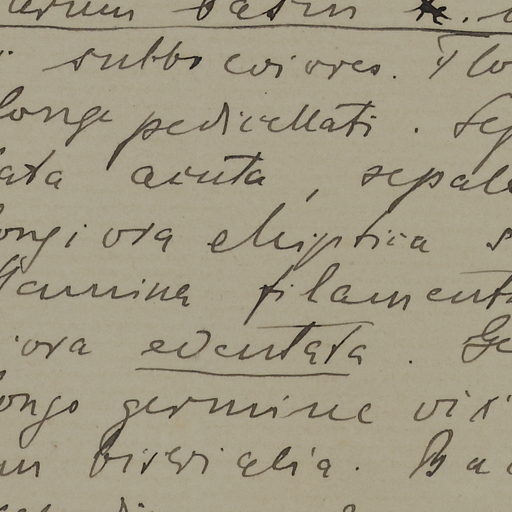 basin
subbreviores. Flo
longe pedicellati. Sep
ata acuta, sepal
ongiora elliptica s
Stamina filament
iora edentata. Ge
ongo germine
biserialia. Bac